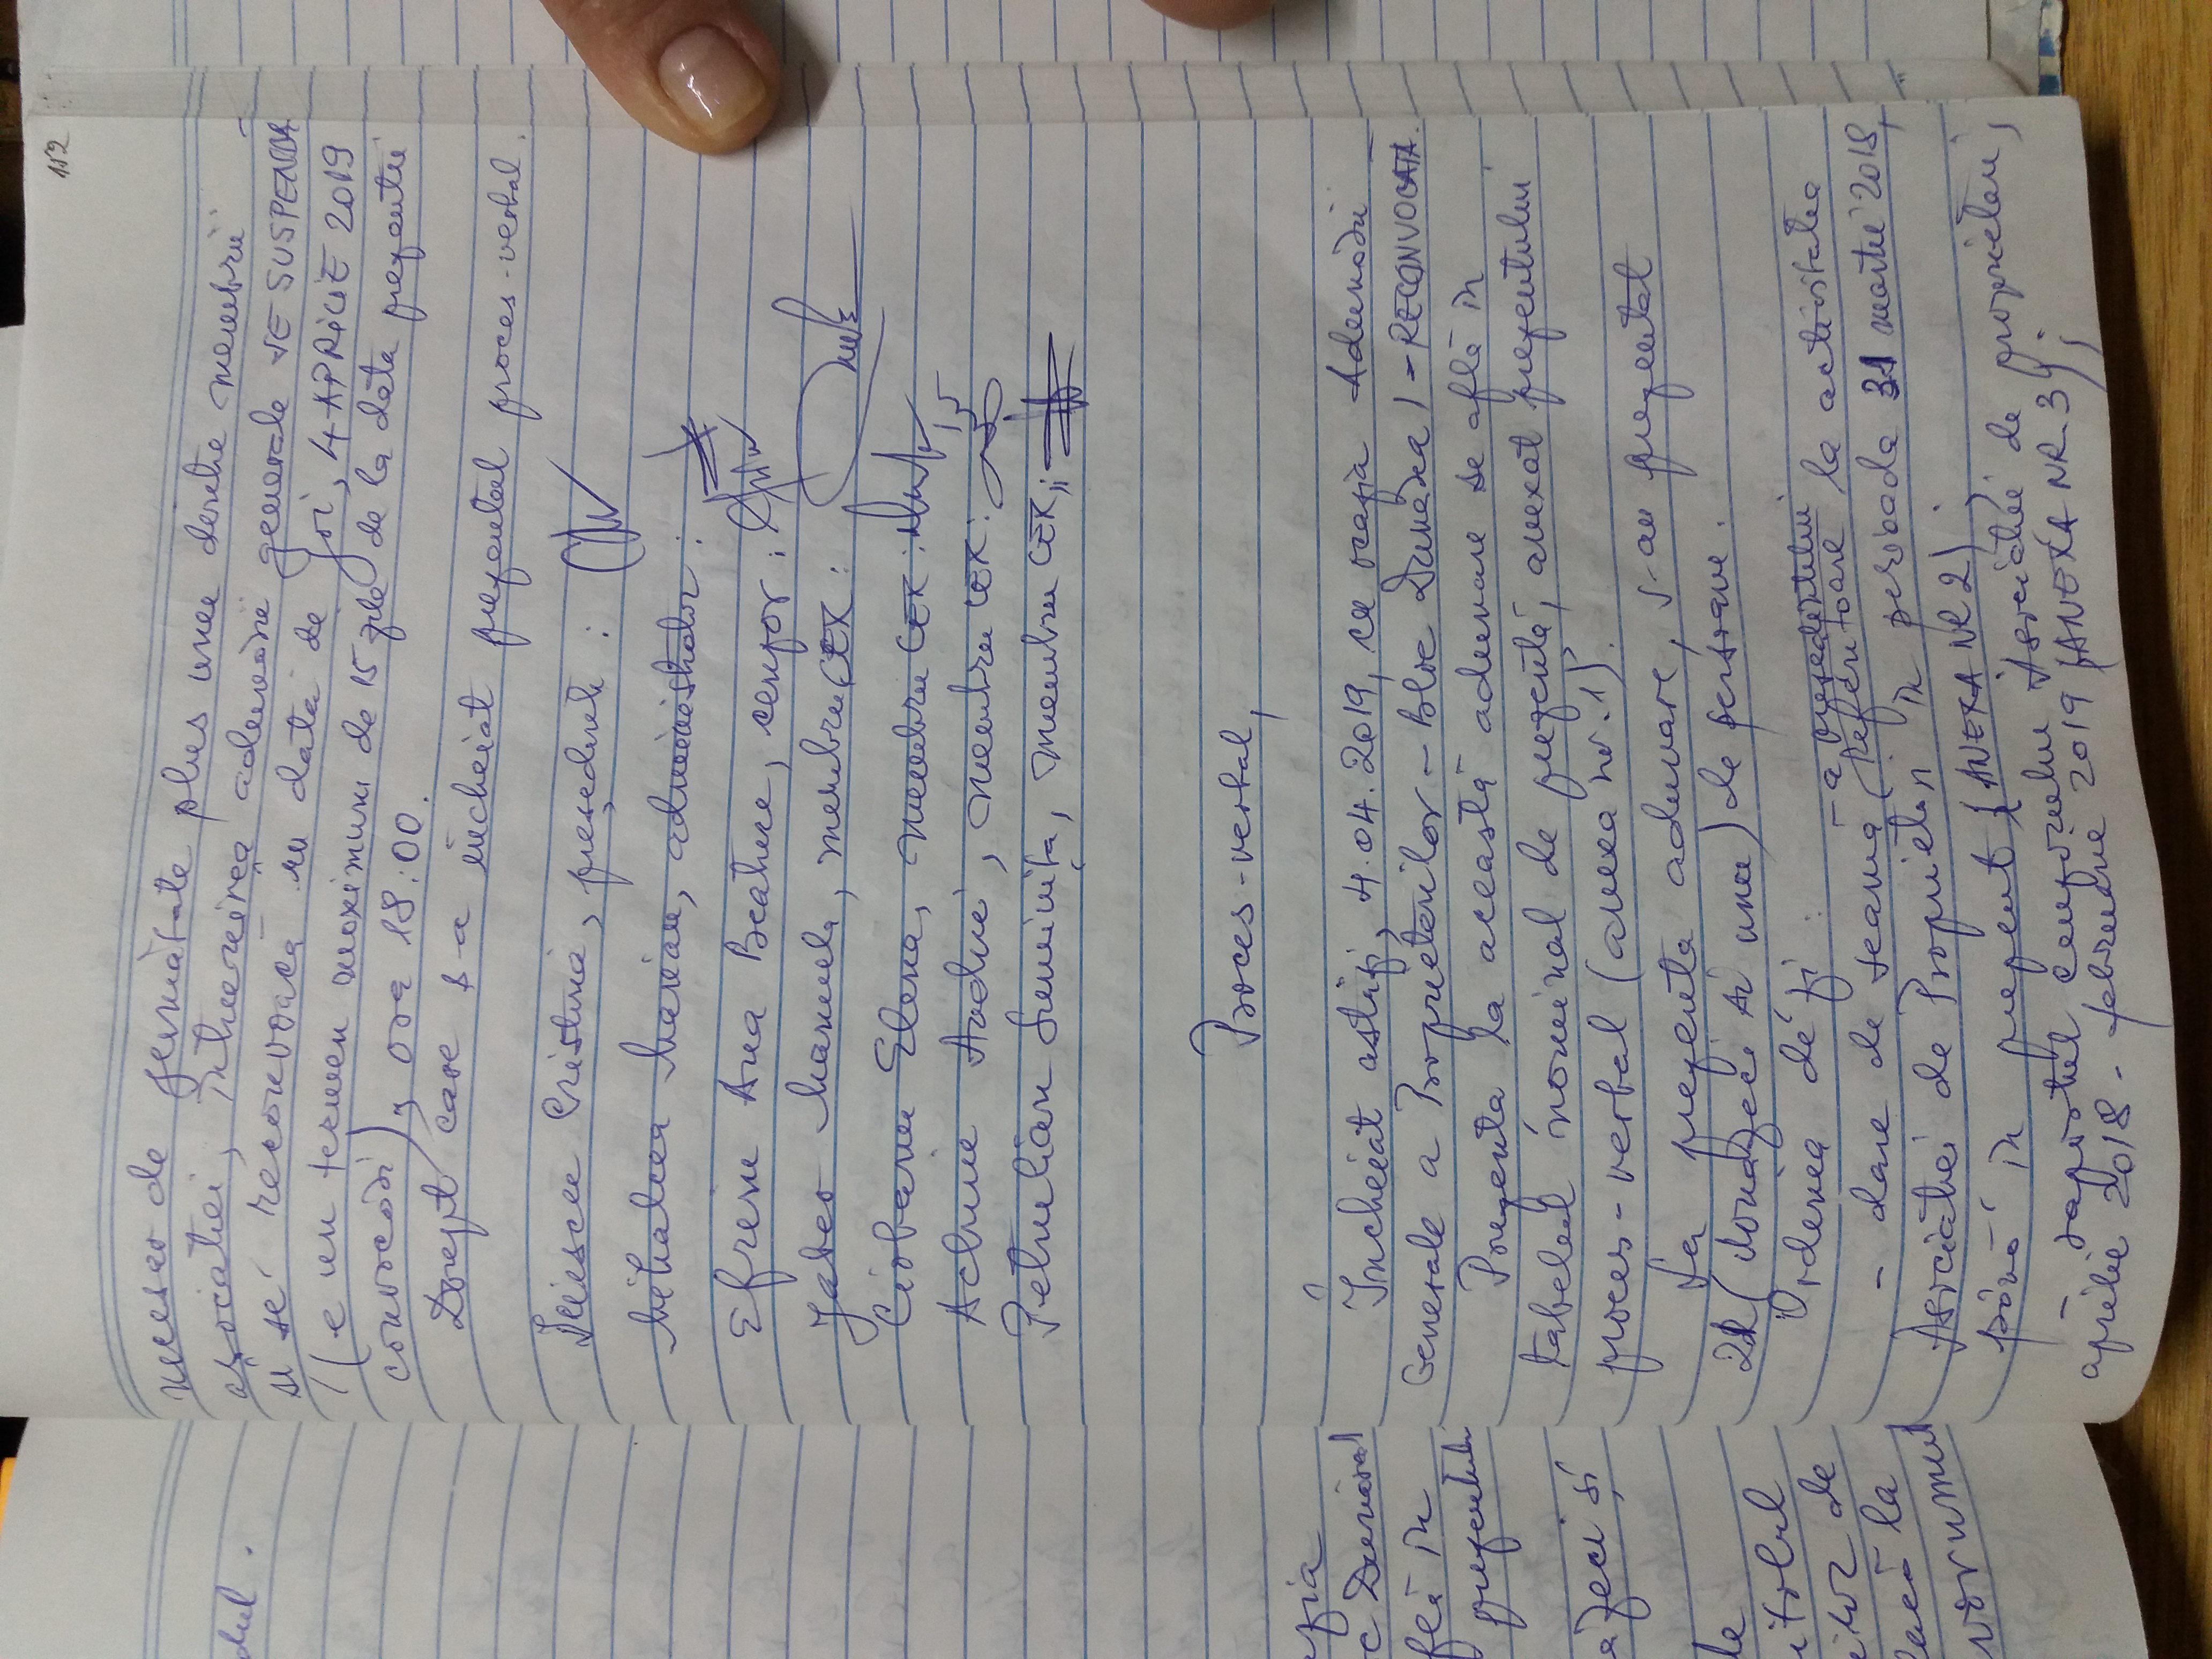 112
numero de jumătate plus unu dintre membrii
asociației, întrunirea adunării generale SE SUSPENDĂ
și se reconvoacă în data de joi, 4 APRILIE 2019
(e un termen maximum de 15 zile de la data prezentei
convocări), ora 18:00.
Drept care s-a încheiat prezentul proces-verbal.
Cristina, președinte:
Mihalcea Marian, administrator:
Efrem Ana Beatrice, cenzor:
Manuela, membru CEX:
Ciobanu Elena, membru CEX:
Achim Andrei, membru CEX:
Petrulian Luminița, membru CEX:
Proces-verbal,
Încheiat astăzi, 4.04.2019, cu ocazia Adunării
Generale a Proprietarilor - Bloc Dunărea 1 - RECONVOCATĂ.
Prezența la această adunare se află în
tabelul nominal de prezență, anexat prezentului
proces-verbal (anexa nr. 1).
La prezenta adunare, s-au prezentat
21 (douăzeci și una) de persoane.
Ordinea de zi:
- dare de seamă a președintelui (referitoare la activitatea
Asociației de Proprietari în perioada 31 martie 2018,
până în prezent (ANEXA NR 2).
- raportul cenzorului Asociației de proprietari,
aprilie 2018 - februarie 2019 (ANEXA NR 3);
dul.
Dunărea 1
în
prezentului
zeci și
de
la